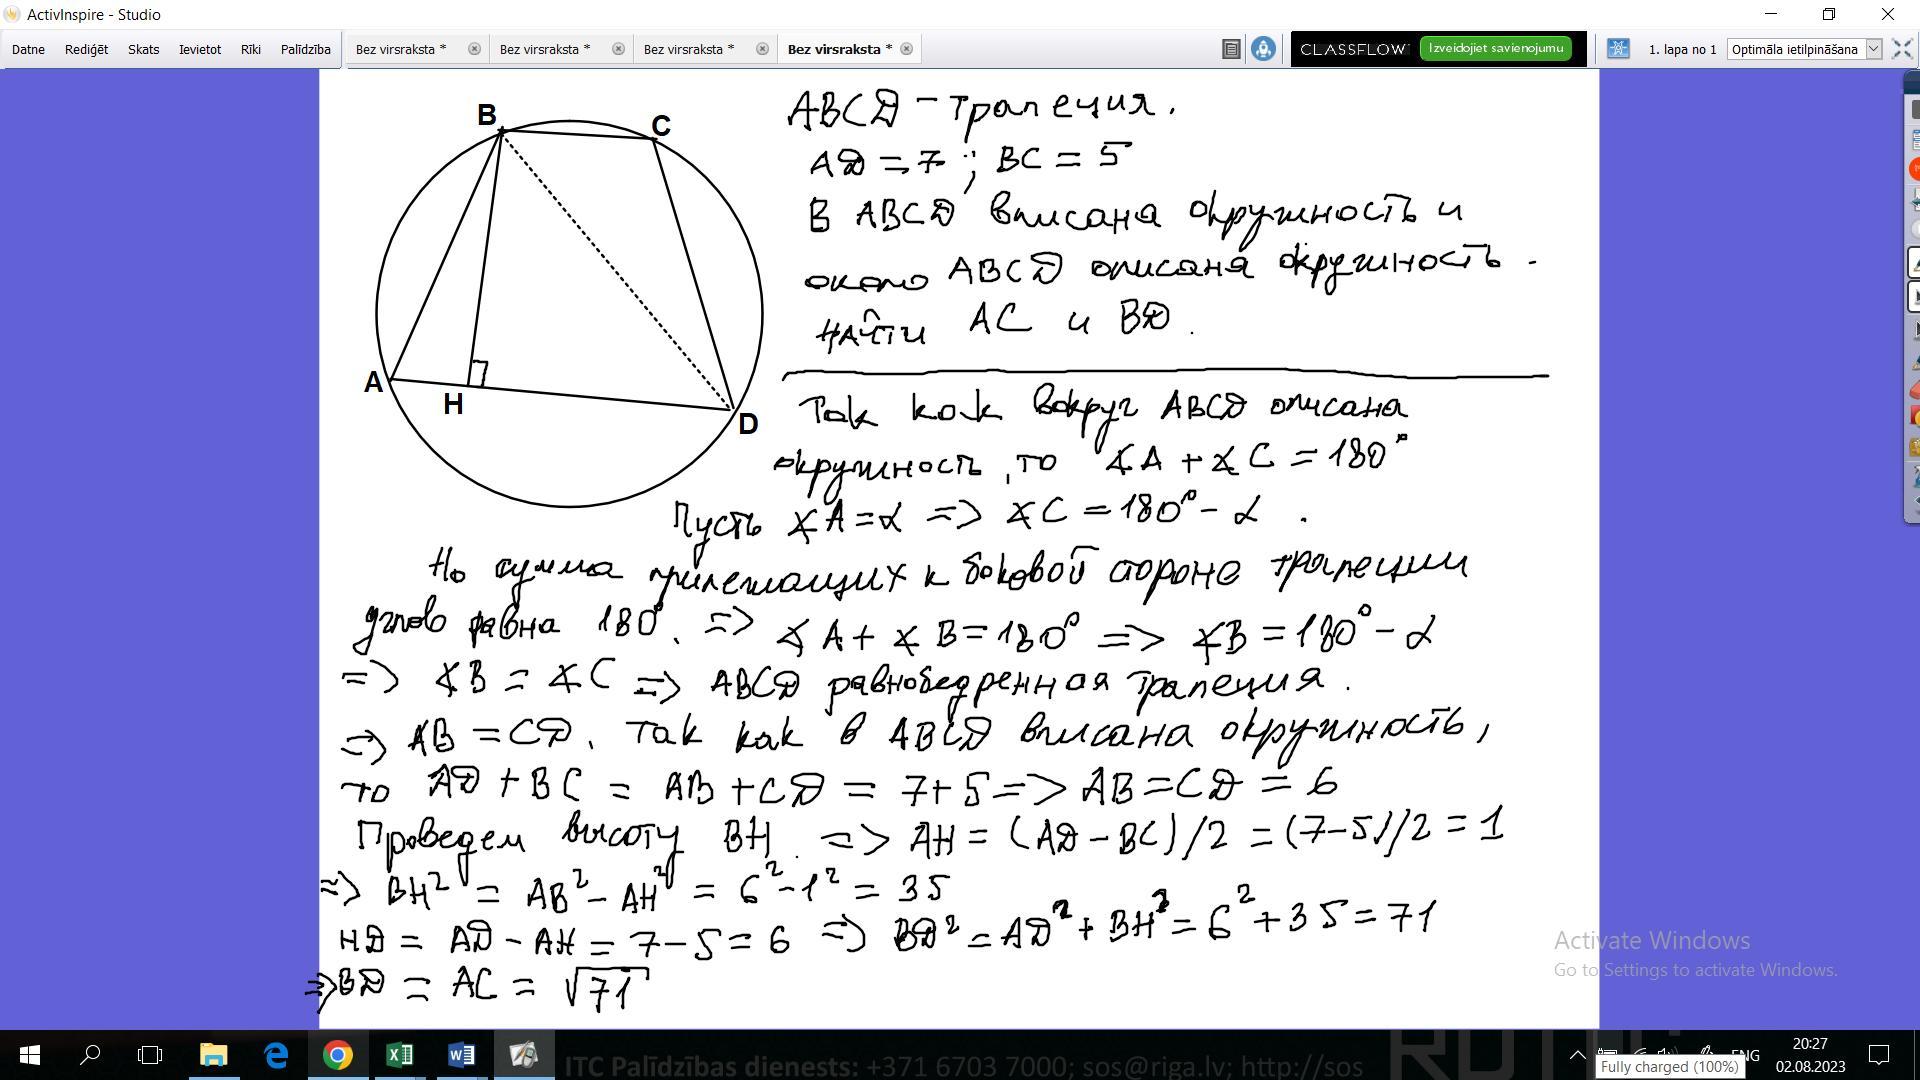 ActivInspire - Studio
Datne Rediģēt Skats Ievietot Rīki Palīdzība Bez virsraksta * Bez virsraksta * Bez virsraksta * Bez virsraksta * CLASSFLOW Izveidojiet savienojumu 1. lapa no 1 Optimāla ietilpināšana
B
C
A
H
D
ABCD - трапеция.
AD = 7 ; BC = 5
В ABCD вписана окружность и
около ABCD описана окружность.
найти AC и BD.
Так как вокруг ABCD описана
окружность, то ∡A + ∡C = 180°
Пусть ∡A = α => ∡C = 180° - α.
Но сумма прилежащих к боковой стороне трапеции
углов равна 180°. => ∡A + ∡B = 180° => ∡B = 180° - α
=> ∡B = ∡C => ABCD равнобедренная трапеция.
=> AB = CD. Так как в ABCD вписана окружность,
то AD + BC = AB + CD = 7 + 5 => AB = CD = 6
Проведем высоту BH. => AH = (AD - BC)/2 = (7-5)/2 = 1
=> BH² = AB² - AH² = 6² - 1² = 35
HD = AD - AH = 7 - 5 = 6 => BD² = AD² + BH² = 6² + 35 = 71
=> BD = AC = √71
Activate Windows
Go to Settings to activate Windows.
ITC Palīdzības dienests: +371 6703 7000; sos@riga.lv; http://sos
ENG
20:27
02.08.2023
Fully charged (100%)